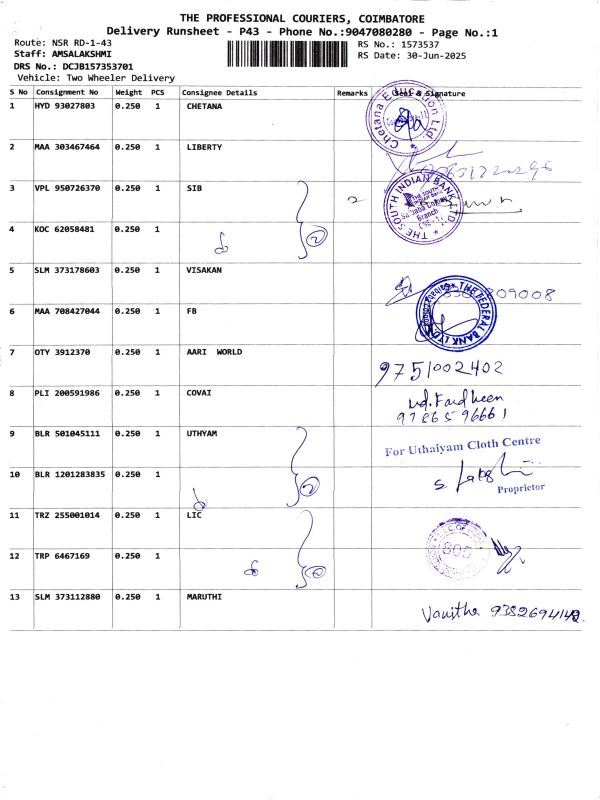 THE PROFESSIONAL COURIERS, COIMBATORE
Delivery Runsheet - P43 - Phone No.:9047080280 - Page No.:1
Route: NSR RD-1-43
Staff: AMSALAKSHMI
DRS No.: DCJB157353701
Vehicle: Two Wheeler Delivery
RS No.: 1573537
RS Date: 30-Jun-2025
S No Consignment No Weight PCS Consignee Details Remarks Seal & Signature
1 HYD 93027803 0.250 1 CHETANA
Chetana Education Ltd.
2 MAA 303467464 0.250 1 LIBERTY
3 VPL 950726370 0.250 1 SIB 2
THE SOUTH INDIAN BANK LTD.
Branch
4 KOC 62058481 0.250 1
5 SLM 373178603 0.250 1 VISAKAN
6 MAA 708427044 0.250 1 FB
THE FEDERAL BANK LTD.
7 OTY 3912370 0.250 1 AARI WORLD
9751002402
8 PLI 200591986 0.250 1 COVAI
Md. Fardheen
9786596661
9 BLR 501045111 0.250 1 UTHYAM
For Uthaiyam Cloth Centre
10 BLR 1201283835 0.250 1 2
Proprietor
11 TRZ 255001014 0.250 1 LIC
805
12 TRP 6467169 0.250 1 2
13 SLM 373112880 0.250 1 MARUTHI
Vanitha 9382694142